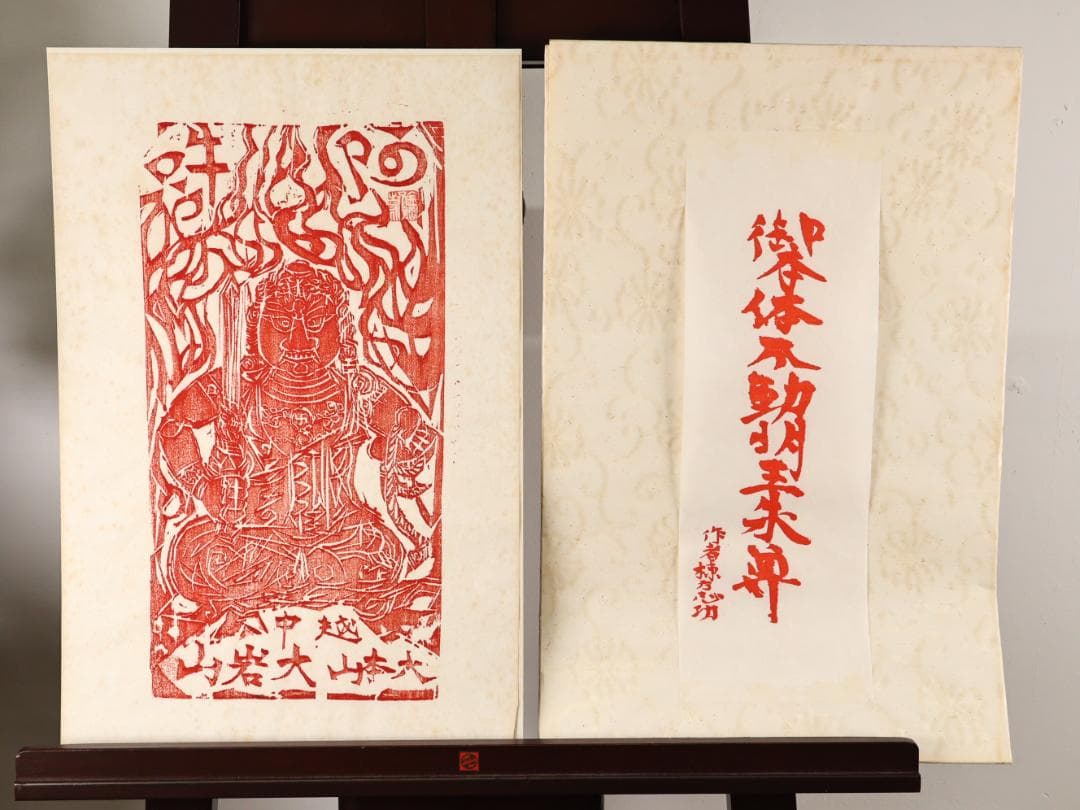 阿
吽
越中
大本山大岩山
御本体不動明王尊
作者棟方志功